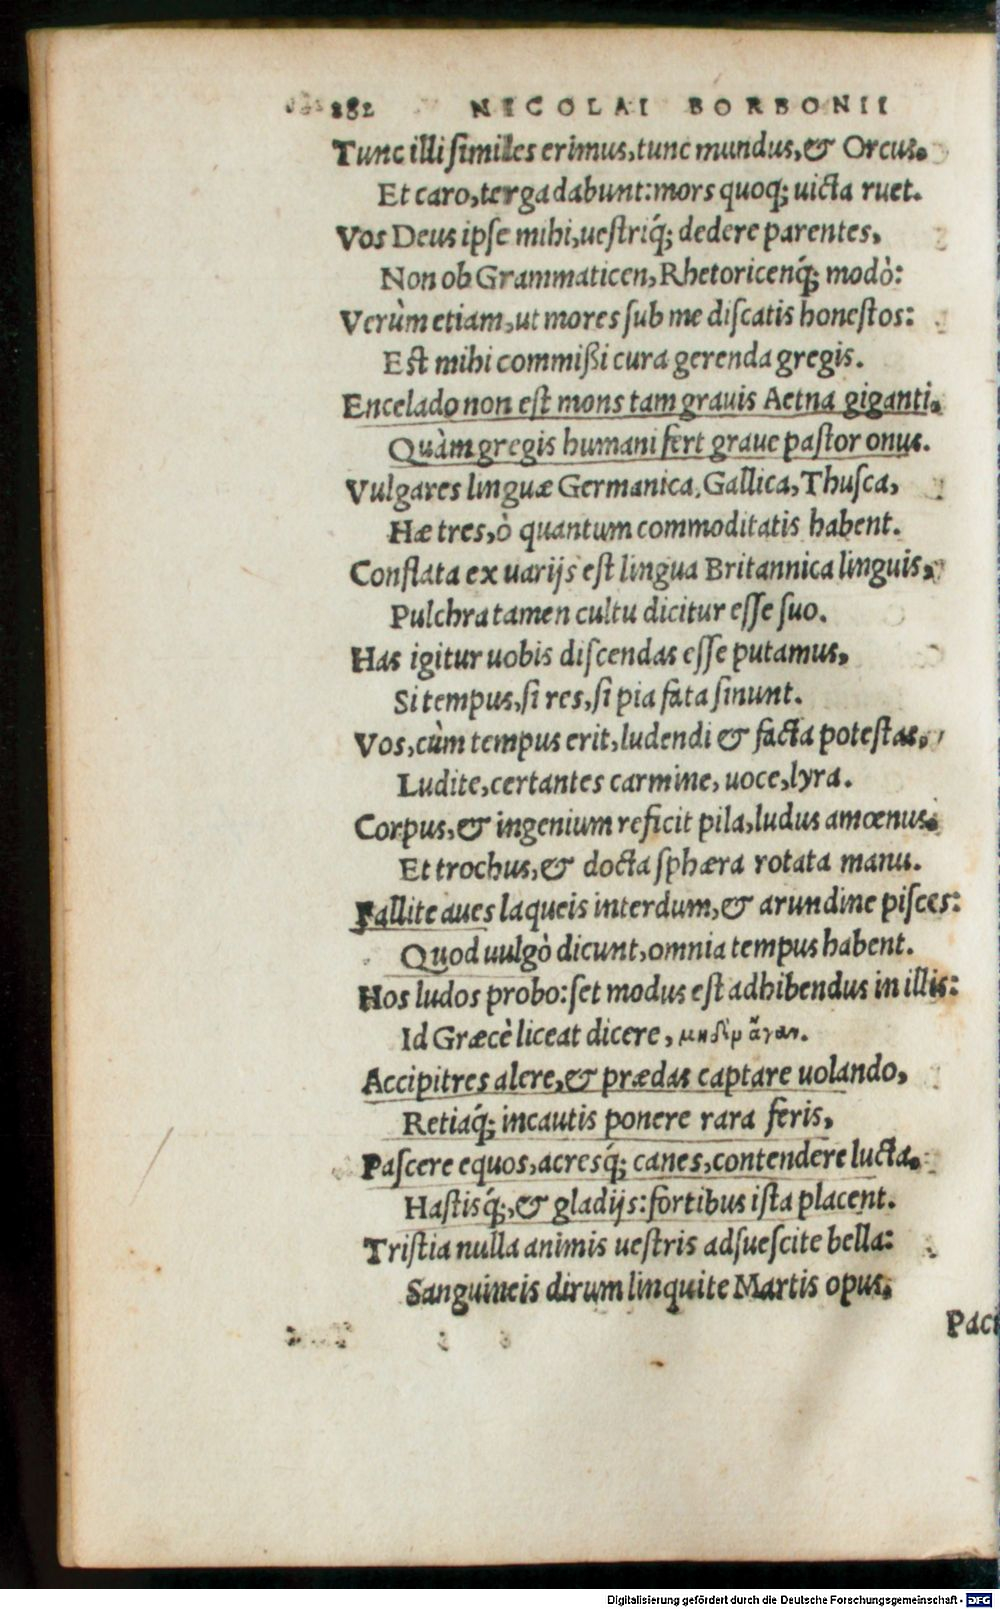 282 NICOLAI BORBONII
Tunc illi ſimiles erimus, tunc mundus, & Orcus.
Et caro, terga dabunt: mors quoq; uicta ruet.
Vos Deus ipſe mihi, ueſtriq́; dedere parentes,
Non ob Grammaticen, Rhetoricenq́; modò:
Verùm etiam, ut mores ſub me diſcatis honeſtos:
Eſt mihi commißi cura gerenda gregis.
Encelado non eſt mons tam grauis Aetna giganti,
Quàm gregis humani fert graue paſtor onus.
Vulgares linguæ Germanica, Gallica, Thuſca,
Hæ tres, ò quantum commoditatis habent.
Conflata ex uarijs eſt lingua Britannica linguis,
Pulchra tamen cultu dicitur eſſe ſuo.
Has igitur uobis diſcendas eſſe putamus,
Si tempus, ſi res, ſi pia fata ſinunt.
Vos, cùm tempus erit, ludendi & facta poteſtas,
Ludite, certantes carmine, uoce, lyra.
Corpus, & ingenium reficit pila, ludus amœnus.
Et trochus, & docta ſphæra rotata manu.
Fallite aues laqueis interdum, & arundine piſces:
Quod uulgò dicunt, omnia tempus habent.
Hos ludos probo: ſet modus eſt adhibendus in illis:
Id Græcè liceat dicere, μηδὲν ἄγαν.
Accipitres alere, & prædas captare uolando,
Retiaq́; incautis ponere rara feris,
Paſcere equos, acresq́; canes, contendere lucta,
Haſtisq́;, & gladijs: fortibus iſta placent.
Triſtia nulla animis ueſtris adſueſcite bella:
Sanguineis dirum linquite Martis opus,
Paci
Digitalisierung gefördert durch die Deutsche Forschungsgemeinschaft - DFG